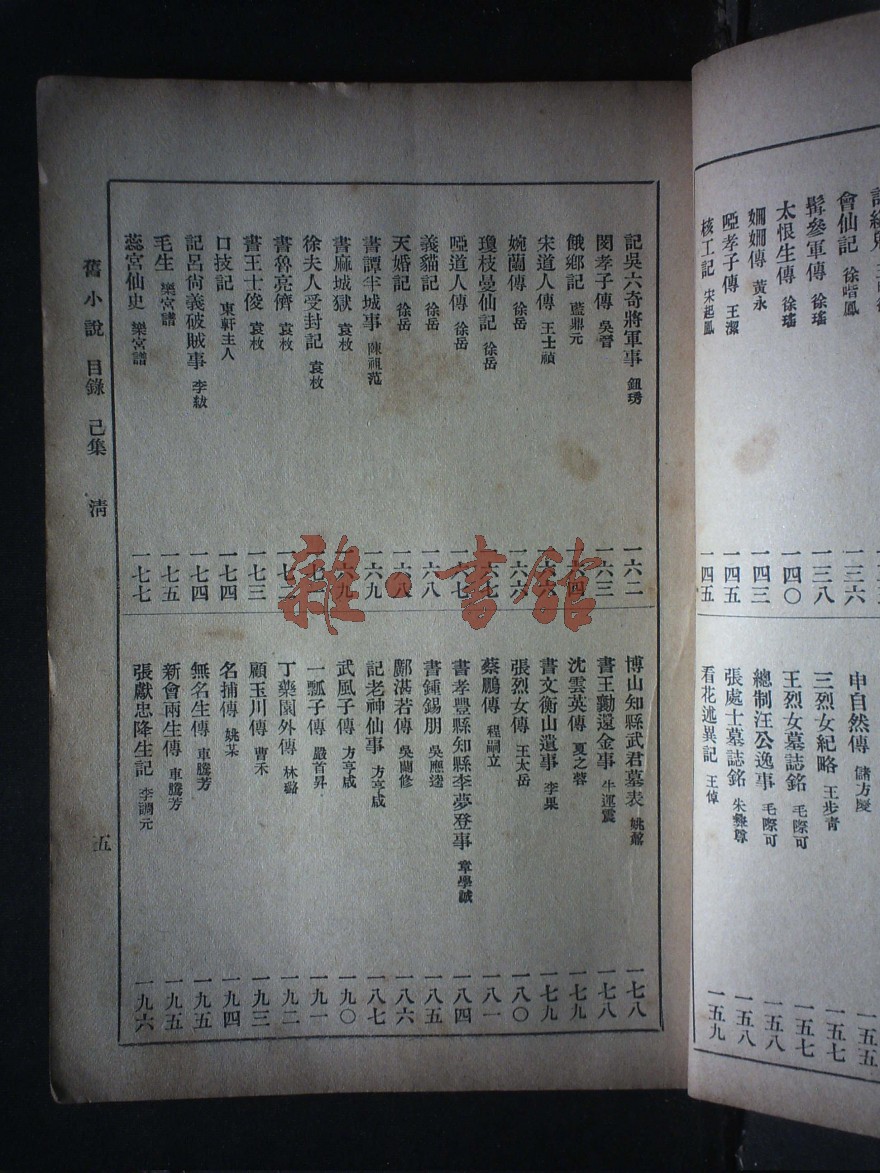 會仙記 徐喈鳳 一三六
髯參軍傳 徐瑤 一三八
太恨生傳 徐瑤 一四〇
姍姍傳 黃永 一四三
啞孝子傳 王潔 一四五
核工記 宋起鳳 一四五
申自然傳 儲方慶 一五五
三烈女紀略 王步青 一五七
王烈女墓誌銘 毛際可 一五七
總制汪公逸事 毛際可 一五八
張處士墓誌銘 朱彝尊 一五八
看花述異記 王倬 一五九
記吳六奇將軍事 鈕琇 一六二
閔孝子傳 吳晉 一六三
餓鄉記 藍鼎元 一六四
宋道人傳 王士禎 一六六
婉蘭傳 徐岳 一六六
瓊枝曼仙記 徐岳 一六七
啞道人傳 徐岳 一六七
義貓記 徐岳 一六八
天婚記 徐岳 一六八
書譚半城事 陳祖范 一六九
書麻城獄 袁枚 一六九
徐夫人受封記 袁枚 一七一
書魯亮儕 袁枚 一七二
書王士俊 袁枚 一七三
口技記 東軒主人 一七四
記呂尚義破賊事 李紱 一七四
毛生 樂宮譜 一七五
蕊宮仙史 樂宮譜 一七七
博山知縣武君墓表 姚鼐 一七八
書王勤還金事 牛運震 一七八
沈雲英傳 夏之蓉 一七九
書文衡山遺事 李果 一七九
張烈女傳 王太岳 一八〇
蔡鵬傳 程嗣立 一八一
書孝豐縣知縣李夢登事 章學誠 一八四
書鍾錫朋 吳應逵 一八五
鄺湛若傳 吳蘭修 一八六
記老神仙事 方亨咸 一八七
武風子傳 方亨咸 一九〇
一瓢子傳 嚴首昇 一九一
丁藥園外傳 林璐 一九二
顧玉川傳 曹禾 一九三
名捕傳 姚某 一九四
無名生傳 車騰芳 一九五
新會兩生傳 車騰芳 一九五
張獻忠降生記 李調元 一九六
舊小說 目錄 己集 清 五
雜·書館